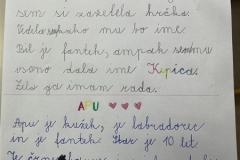 sem si zaželela hrčka.
Vedela kako mu bo ime.
Bil je fantek, ampak sem mu
vseno dala ime Kepica.
Zelo ga imam rada.
APU
Apu je kužek, je labradorec
in je fantek. Star je 10 let.
Je črne